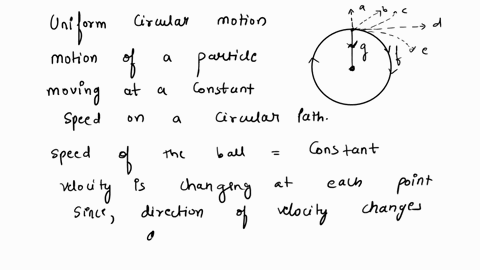 Uniform Circular motion
motion of a particle
moving at a Constant
Speed on a Circular Path.
Speed of the ball = Constant
velocity is changing at each point
Since, direction of velocity changes
a
b
c
d
e
f
g